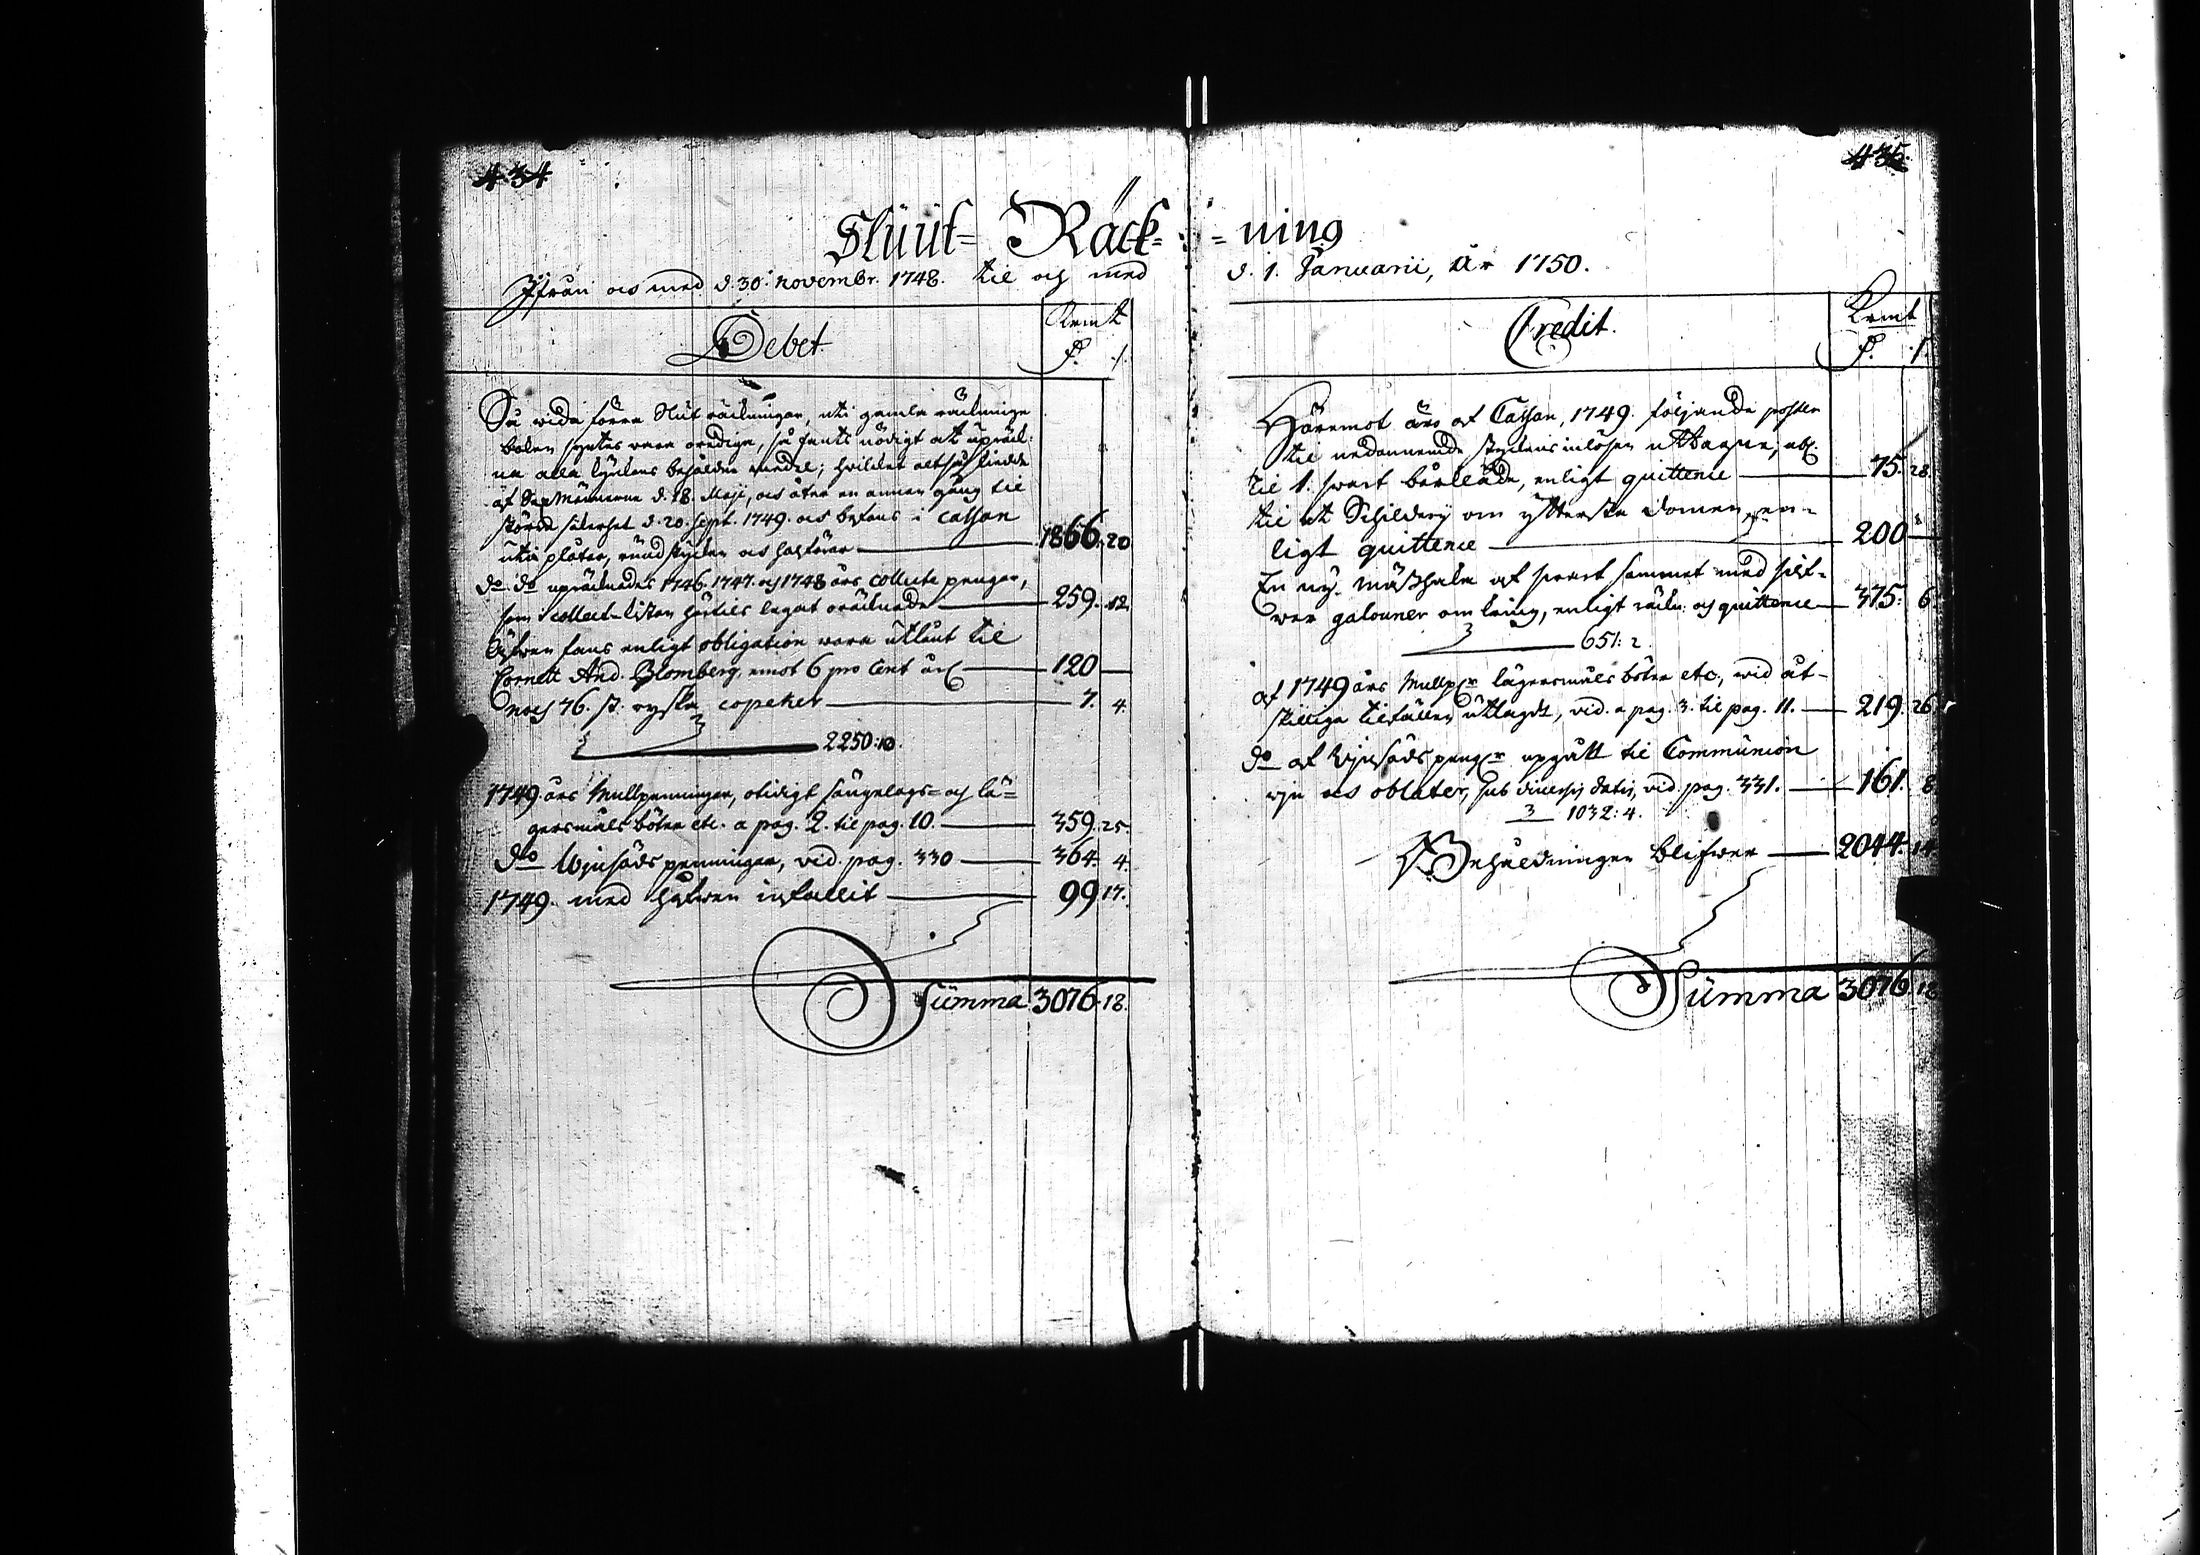 434
435
Slüüt= Räck= =ning
Ifrån och med d. 30. novembr. 1748. til och med d. 1. Januarii, År 1750.
Debet.
Krmt
Så wida förra Slut räckningar, uti gamla räcknings
boken syntes vara oredige, så fants nödigt at upräck=
na alla kyrkans behåldne medel; hvilket altså skiedde
af Sexmännerne d. 18. Maji, och åter en annan gång til
större säkerhet d. 20. Sept. 1749. och befans i Cassan
uti plåtar, rundstycken och 1866. 20
do do upräknades 1746. 1747. och 1748 års Collecte pengar,
som i Collect-kistan härtils legat oräknade 259. 12.
Äfwen fans enligt obligation wara utlånt til
Cornett And. Blomberg, emot 6 pro Cent 120
noch 76. st. ryska copeker 7. 4.
2250:10.
1749 års Mullpenningar, otidigt sängelags= och lä=
gersmåls böter etc. a pag. 2. til pag. 10. 359. 25.
do Winsäds penningar, vid. pag. 330 364. 4.
1749. med håfwen infallit 99 17.
Summa 3076. 18.
Credit.
Krmt
Häremot äro af Cassan, 1749. följande poster
til nedannemde styckens inlösen uttagne,
til 1. svart bårkläde, enligt quittence 75. 28.
til et Schilderij om ytterste domen, en=
ligt quittence 200
En ny Mässhake af svart sammet med silf=
wer galouner omkring, enligt räkn: och quittence 375: 6
651: 2.
af 1749 års Mullpr lägersmåls böter etc, wid åt=
skilliga tilfällen utlagdt, vid. a pag. 3. til pag. 11. 219. 26
do af Winsädspengr upgått til Communion
win och oblater, sub diversis datis, vid. pag. 331. 161. 8
1032: 4.
Behåldningen blifwer 2044. 14
Summa 3076. 18